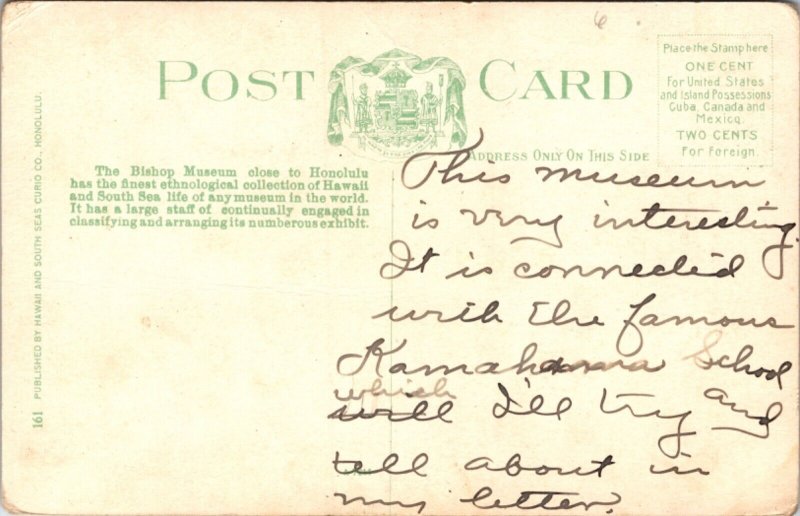 6
POST CARD
Place the Stamp here
ONE CENT
For United States
and Island Possessions
Cuba, Canada and
Mexico.
TWO CENTS
For Foreign.
ADDRESS ONLY ON THIS SIDE
The Bishop Museum close to Honolulu
has the finest ethnological collection of Hawaii
and South Sea life of any museum in the world.
It has a large staff of continually engaged in
classifying and arranging its numberous exhibit.
161 PUBLISHED BY HAWAII AND SOUTH SEAS CURIO CO., HONOLULU.
This museum
is very interesting.
It is connected
with the famous
Kamahama School
which
will I'll try and
tell about in
my letter.